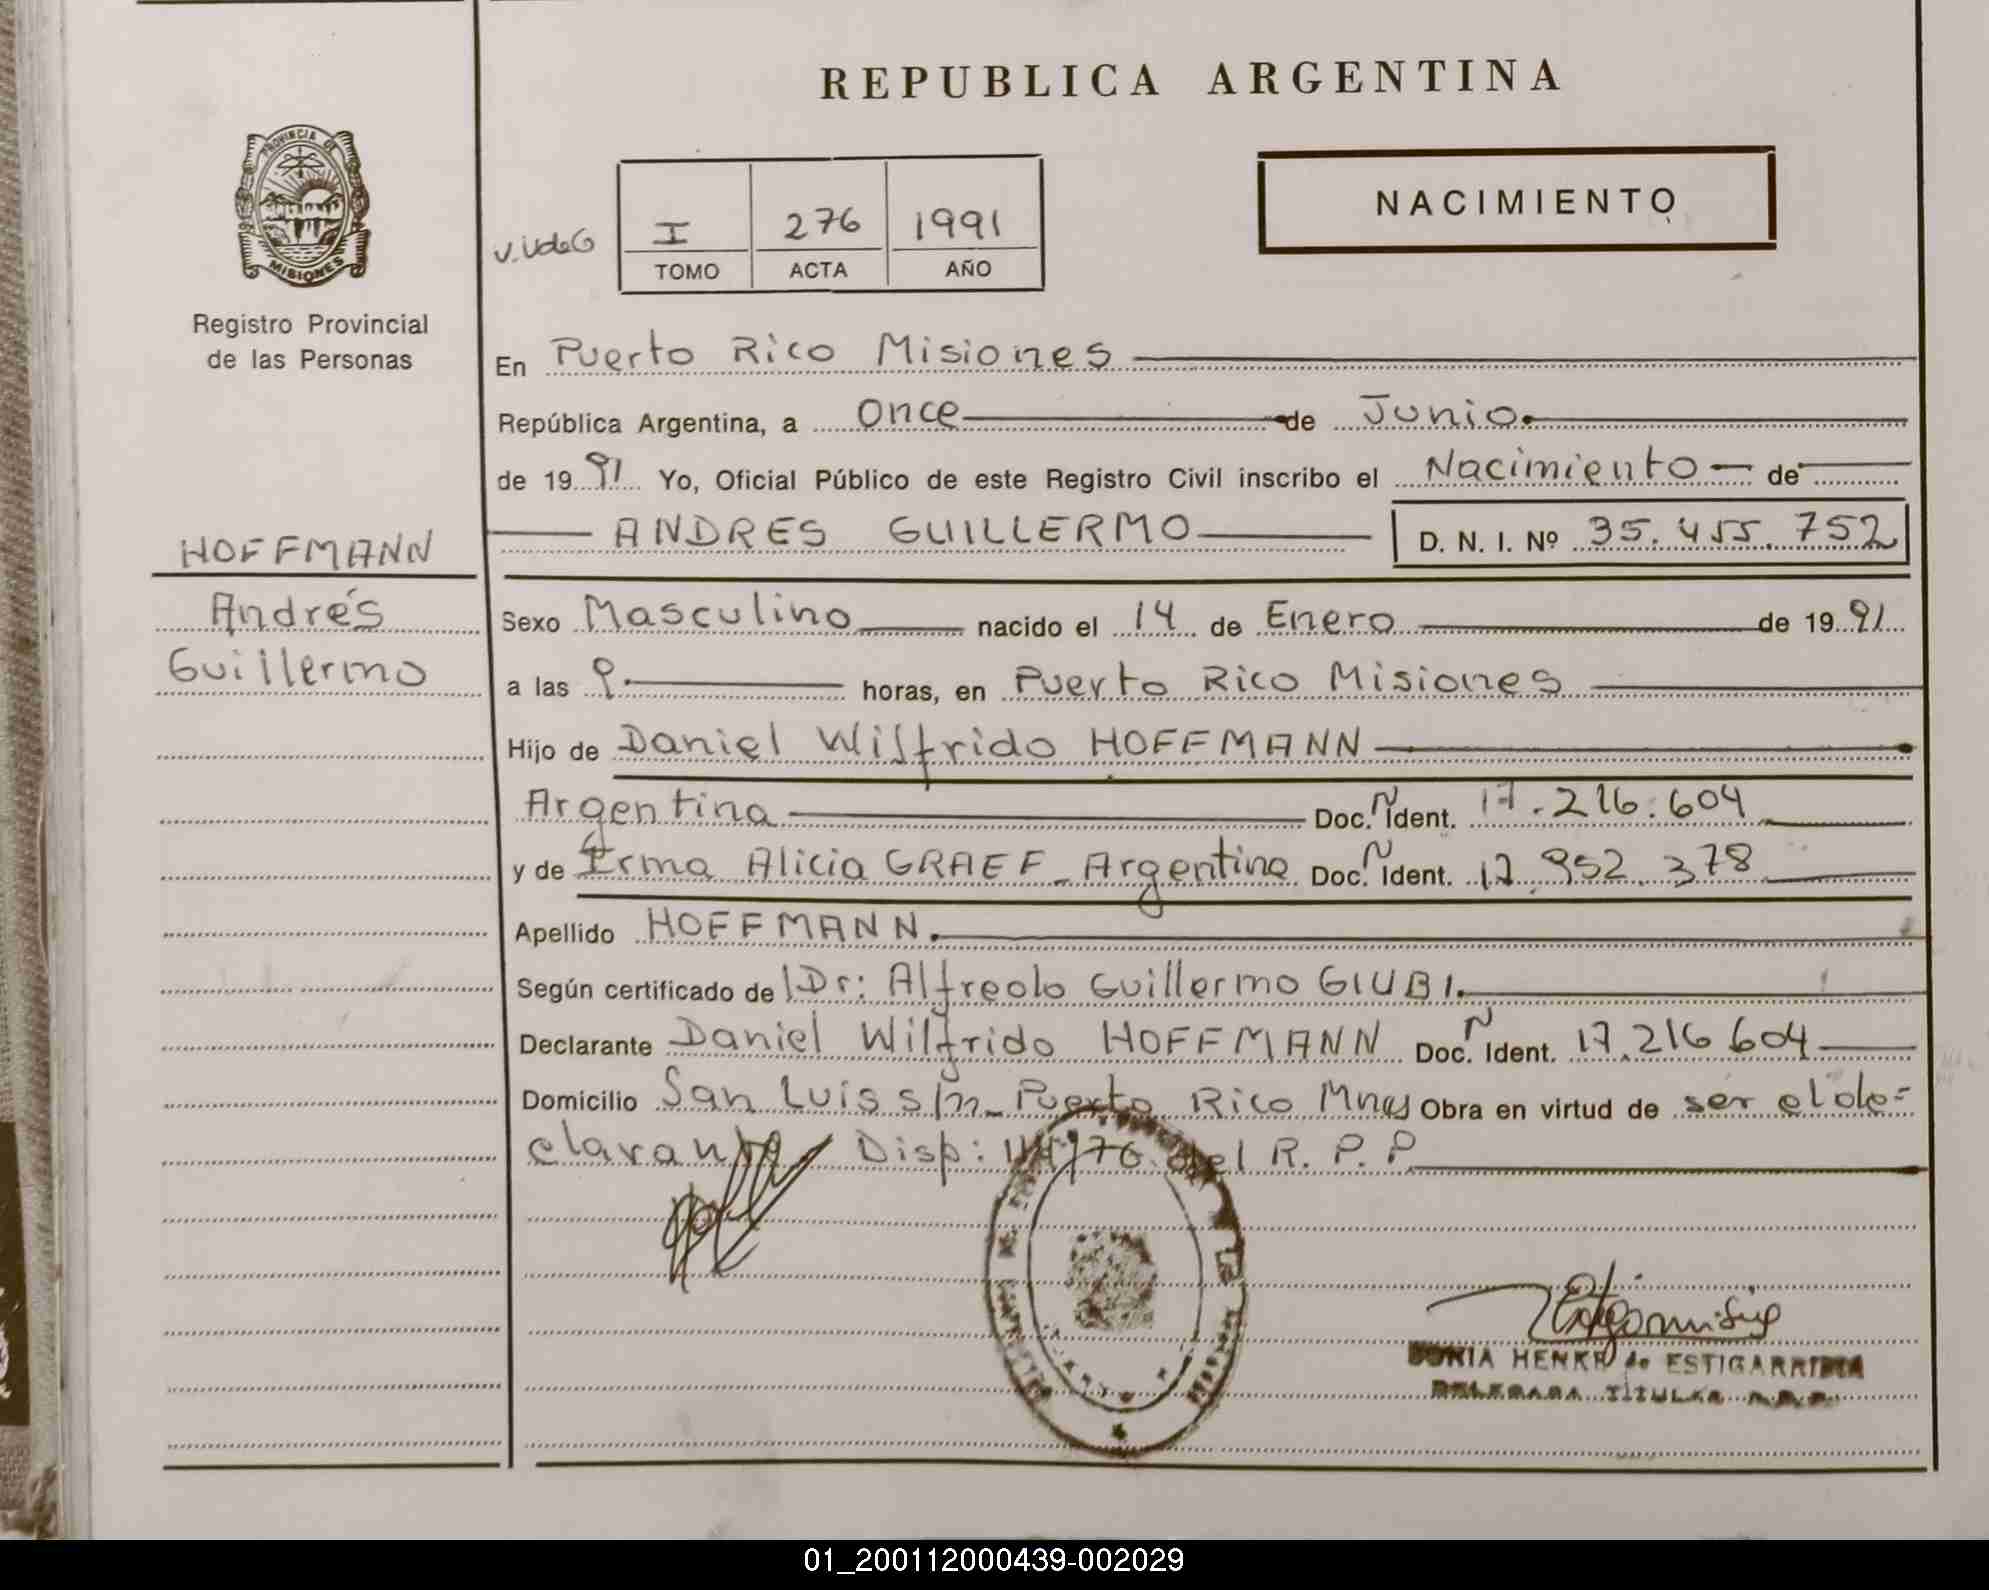 REPUBLICA ARGENTINA
PROVINCIA DE
MISIONES
Registro Provincial
de las Personas
NACIMIENTO
I 276 1991
TOMO ACTA AÑO
En Puerto Rico Misiones
República Argentina, a Once de Junio.
de 1991 Yo, Oficial Público de este Registro Civil inscribo el Nacimiento de
ANDRES GUILLERMO D. N. I. Nº 35.455.752
HOFFMANN
Andrés
Guillermo
Sexo Masculino nacido el 14 de Enero de 1991
a las 9 horas, en Puerto Rico Misiones
Hijo de Daniel Wilfrido HOFFMANN
Argentina Doc. N Ident. 17.216.604
y de Irma Alicia GRAEF - Argentina Doc. N Ident. 17.952.378
Apellido HOFFMANN.
Según certificado de Dr: Alfredo Guillermo GIUBI.
Declarante Daniel Wilfrido HOFFMANN Doc. N Ident. 17.216 604
Domicilio San Luis s/n - Puerto Rico Mnes Obra en virtud de ser el de=
clarante Disp: del R. P. P
SONIA HENKE de ESTIGARRIBIA
DELEGADA TITULAR
01_200112000439-002029